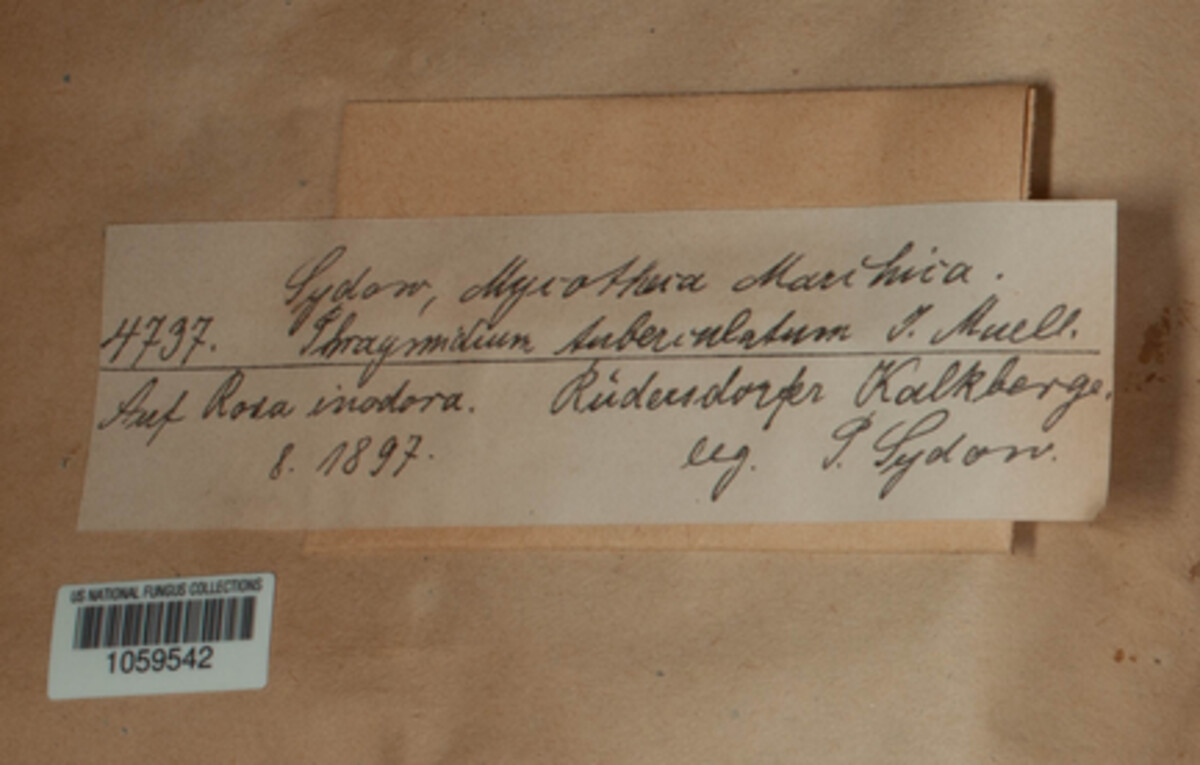 Sydow, Mycotheca Marchica.
4737. Phragmidium tuberculatum J. Muell.
Auf Rosa inodora. Rüdersdorfer Kalkberge.
8. 1897. leg. P. Sydow.
US NATIONAL FUNGUS COLLECTIONS
1059542